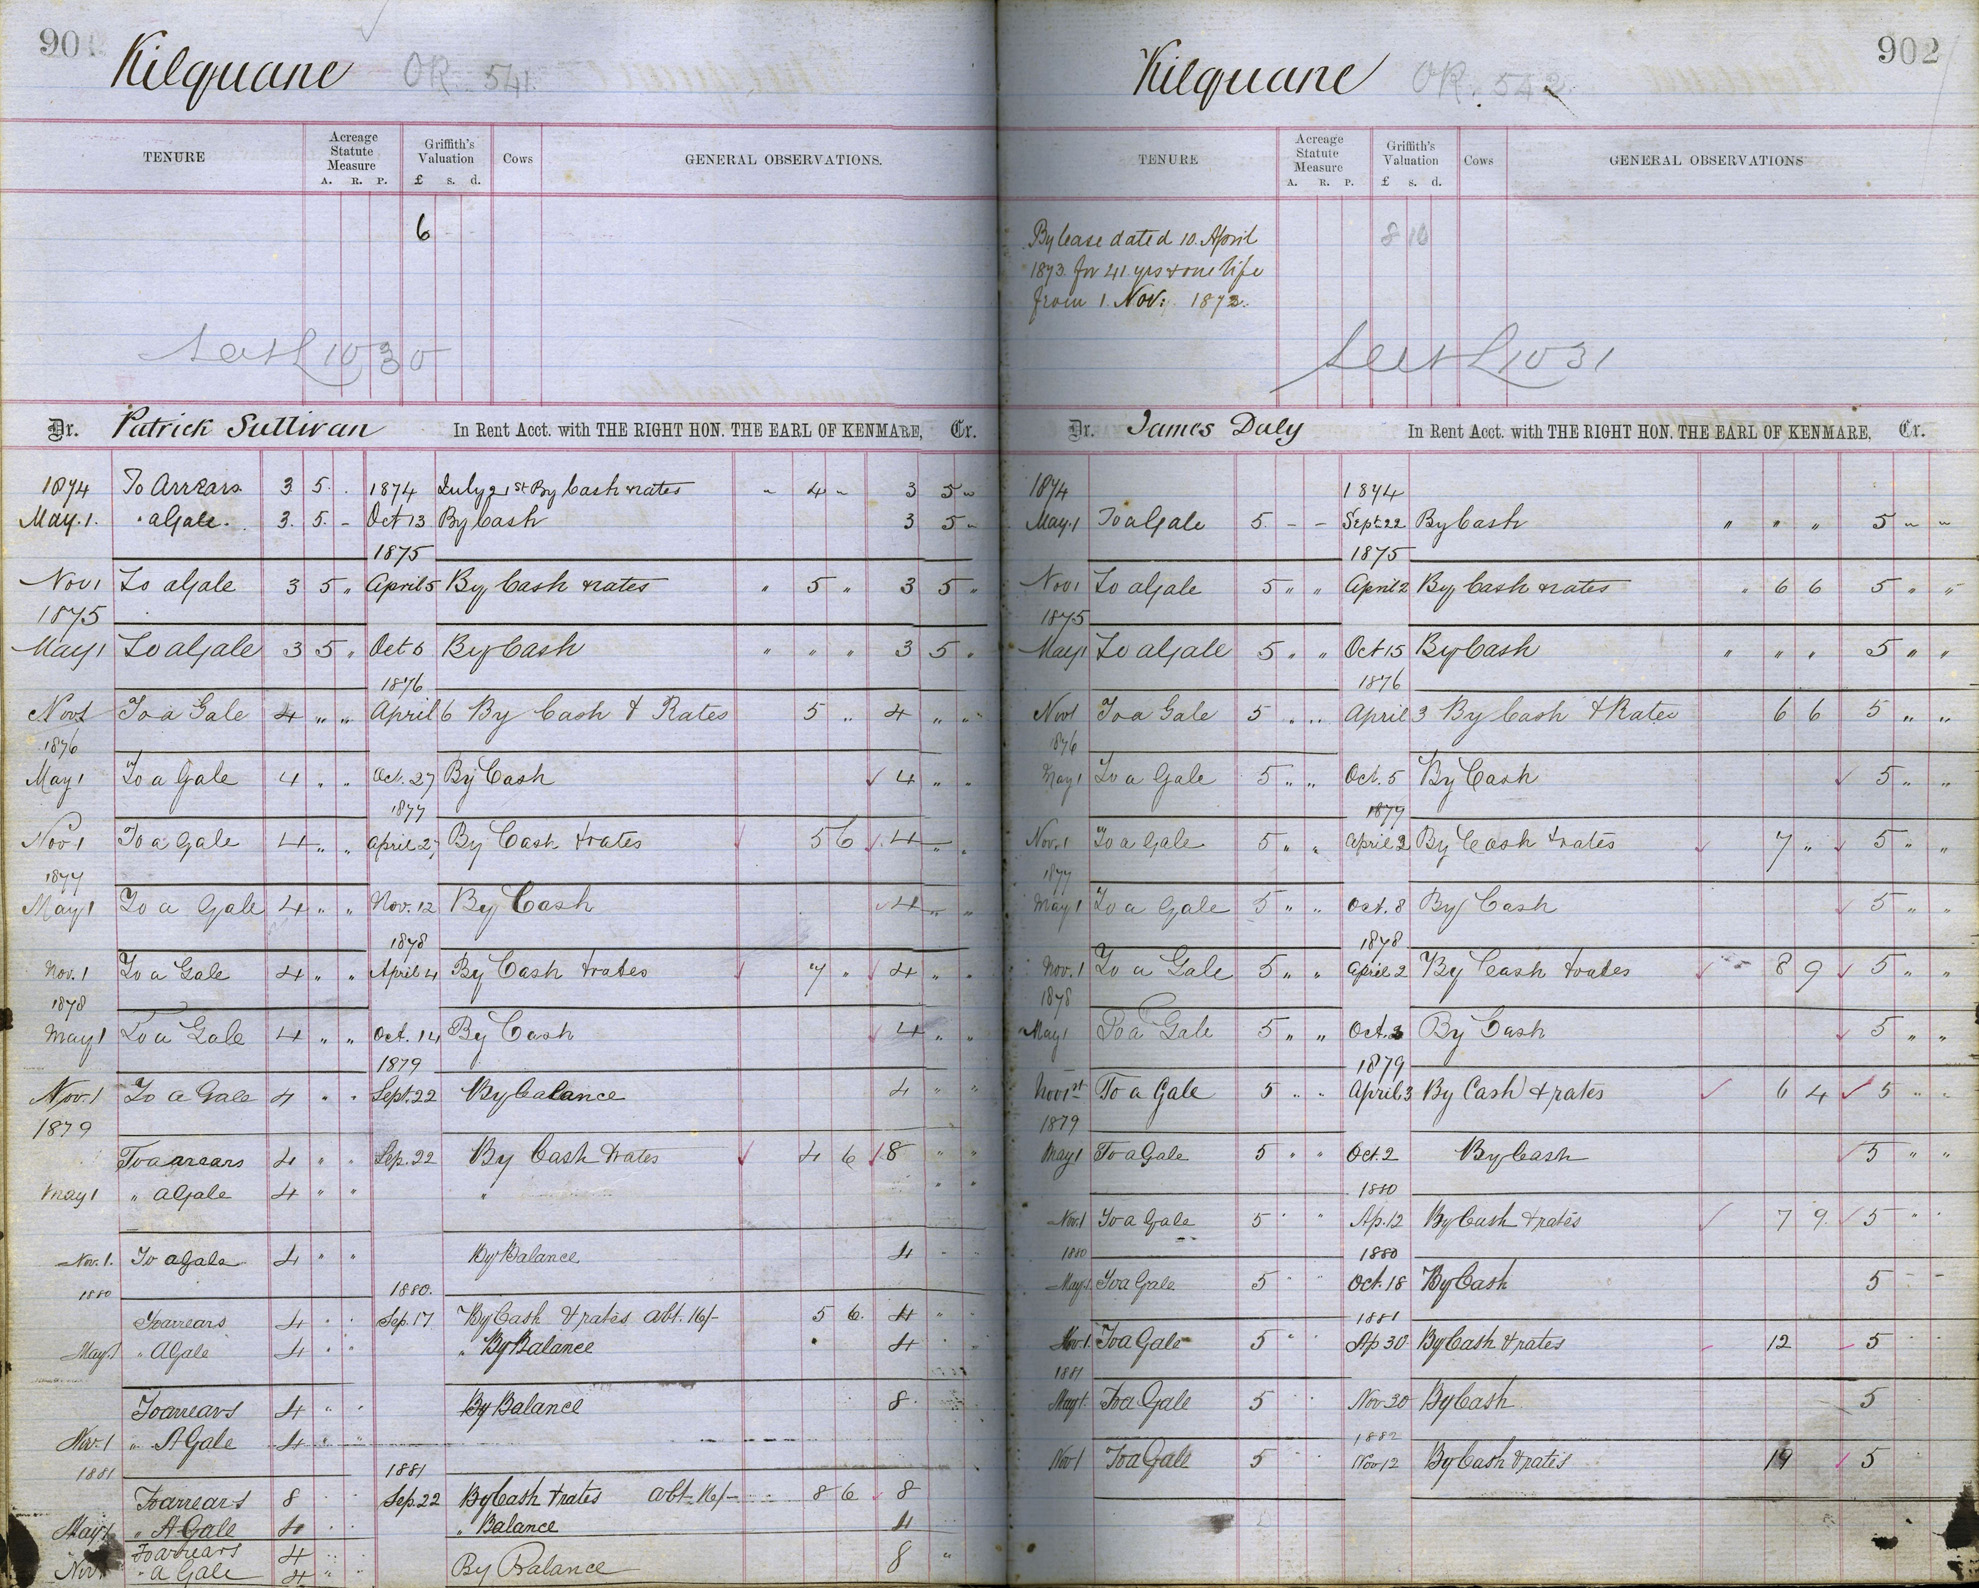 901
Kilquane OR. 541.
TENURE Acreage Statute Measure A. R. P. Griffith's Valuation £ s. d. Cows GENERAL OBSERVATIONS.
6
1030
Dr. Patrick Sullivan In Rent Acct. with THE RIGHT HON. THE EARL OF KENMARE, Cr.
1874 To Arrears 3 5 . 1874 July 21st By Cash & rates " 4 " 3 5 "
May. 1. " a Gale. 3. 5. - Oct 13 By Cash 3 5 "
1875
Nov 1 To a Gale 3 5 " April 5 By Cash & rates " 5 " 3 5 "
1875
May 1 To a Gale 3 5 " Oct 6 By Cash " " " 3 5 "
1876
Nov 1 To a Gale 4 " " April 6 By Cash & Rates 5 " 4 " "
1876
May 1 To a Gale 4 " " Oct. 27 By Cash 4 " "
1877
Nov 1 To a Gale 4 " " April 27 By Cash & rates 5 6 4 " "
1877
May 1 To a Gale 4 " " Nov. 12 By Cash 4 " "
1878
Nov. 1 To a Gale 4 " " April 4 By Cash & rates 7 " 4 " "
1878
May 1 To a Gale 4 " " Oct. 14 By Cash 4 " "
1879
Nov. 1 To a Gale 4 " " Sept. 22 By balance 4 " "
1879
To a arears 4 " " Sep. 22 By Cash & rates 4 6 8 " "
May 1 " a Gale 4 " " " " "
Nov. 1. To a Gale 4 " " By Balance 4 " "
1880 1880.
To arrears 4 " " Sep. 17 By Cash & rates abt. 16/- 5 6. 4 " "
May 1 " A Gale 4 " " " By Balance 4
To arrears 4 " " By Balance 8
Nov. 1 " A Gale 4 " "
1881 1881
To arrears 8 Sep. 22 By Cash & rates abt. 16/- 8 6 8
May 1 " A Gale 4 " Balance 4
To arrears 4
Nov. " a Gale 4 By Balance 8 "
902
Kilquane OR. 542.
TENURE Acreage Statute Measure A. R. P. Griffith's Valuation £ s. d. Cows GENERAL OBSERVATIONS
By lease dated 10. April 8 10
1873. for 41. yrs & one life
from 1. Nov: 1872.
1031
Dr. James Daly In Rent Acct. with THE RIGHT HON. THE EARL OF KENMARE, Cr.
1874 1874
May. 1 To a Gale 5. - - Sept 22 By Cash " " " 5 " "
1875
Nov 1 To a Gale 5 " " April 2 By Cash & rates " 6 6 5 " "
1875
May 1 To a Gale 5 " " Oct 15 By Cash " " " 5 " "
1876
Nov 1 To a Gale 5 " " April 3 By Cash & Rates 6 6 5 " "
1876
May 1 To a Gale 5 " " Oct. 5 By Cash 5 " "
1877
Nov. 1 To a Gale 5 " " April 2 By Cash & rates 7 " 5 " "
1877
May 1 To a Gale 5 " " Oct. 8 By Cash 5 " "
1878
Nov. 1 To a Gale 5 " " April 2 By Cash & rates 8 9 5 " "
1878
May 1 To a Gale 5 " " Oct. 3 By Cash 5 " "
1879
Nov 1st To a Gale 5 " " April 3 By Cash & rates 6 4 5 " "
1879
May 1 To a Gale 5 " " Oct. 2 By Cash 5 " "
1880
Nov. 1 To a Gale 5 " " Ap. 12 By Cash & rates 7 9. 5 " "
1880 1880
May 1 To a Gale 5 " " Oct. 18 By Cash 5
1881
Nov. 1 To a Gale 5 " " Ap 30 By Cash & rates 12 5
1881
May 1 To a Gale 5 Nov 30 By Cash 5
1882
Nov 1 To a Gale 5 Nov 12 By Cash & rates 19 5